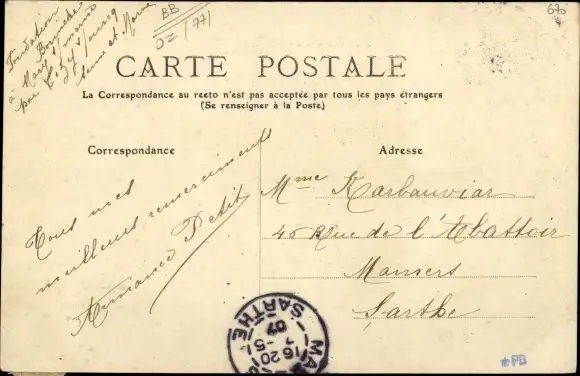 Fondation
à Mary s/ marne
par
Seine et Marne
BB
670
CARTE POSTALE
La Correspondance au recto n'est pas acceptée par tous les pays étrangers
(Se renseigner à la Poste)
Correspondance
Tous mes
meilleurs remerciements
Armance Petit
Adresse
Mme Karbauviar
40 Rue de l'Abattoir
Mamers
Sarthe
16 20
7 -5
07
SARTHE
PB